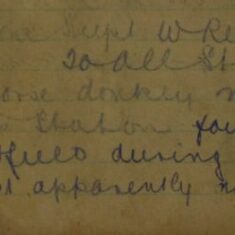 Supt W Re
To All St
orse donkey m
Station fou
during
apparently